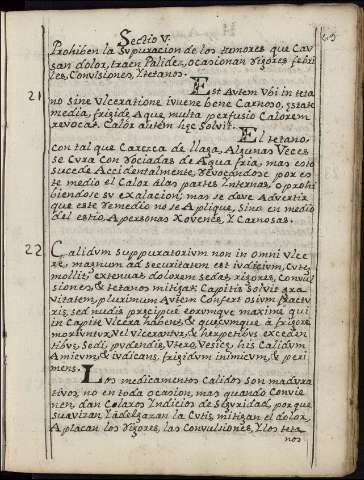 Sectio V.
63
Prohiben la Supuracion de los tumores que Cau
san dolor, traen Palidez, ocasionan rigores febri
les, Convulsiones, Y tetanos.
21 Est Autem Vbi in teta
no sine Vlceratione iuvene bene Carnoso, æstate
media, frigidæ Aquæ multa perfusio Calorem
revocat. Calor autem hæc Solvit.
El tetano,
con tal que Caresca de llaga, Algunas Veces
se Cura Con Rociadas de Agua fria, mas esto
sucede Accidentalmente, Revocandose por es
te medio el Calor álas partes Internas, o prohi
biendose su exalacion, mas se deve Advertir
que este Remedio no se Aplique, Sino en medio
del estio, A personas Xovenes, Y Carnosas.
22 Calidum Suppuratorium non in omni Vlce
re, magnum ad securitatem est iudicium, Cutem
mollit, extenuat, dolorem sedat, rigores, Convul
siones, & tetanos mitigat, Capitis Solvit gra
vitatem, plurimum Autem Confert osium fractu
ris, sed nudis præcipue eorumque maxime qui
in Capite Vlcera habent, & quæcumque á frigore
moriuntur Vel Vlcerantur, & herpetibus exceden
tibus, Sedi, pudendis, Vtero, Vesicæ, his Calidum
Amicum, & iudicans, frigidum inimicum, & peri
mens.
Los medicamentos Calidos son madura
tivos, no en toda ocasion, mas quando Convie
nen, dan Claros Yndicios de Seguridad, porque
suavizan, Y adelgazan la Cutis, mitigan el dolor,
Aplacan los rigores, las Convulsiones, Y los teta
nos